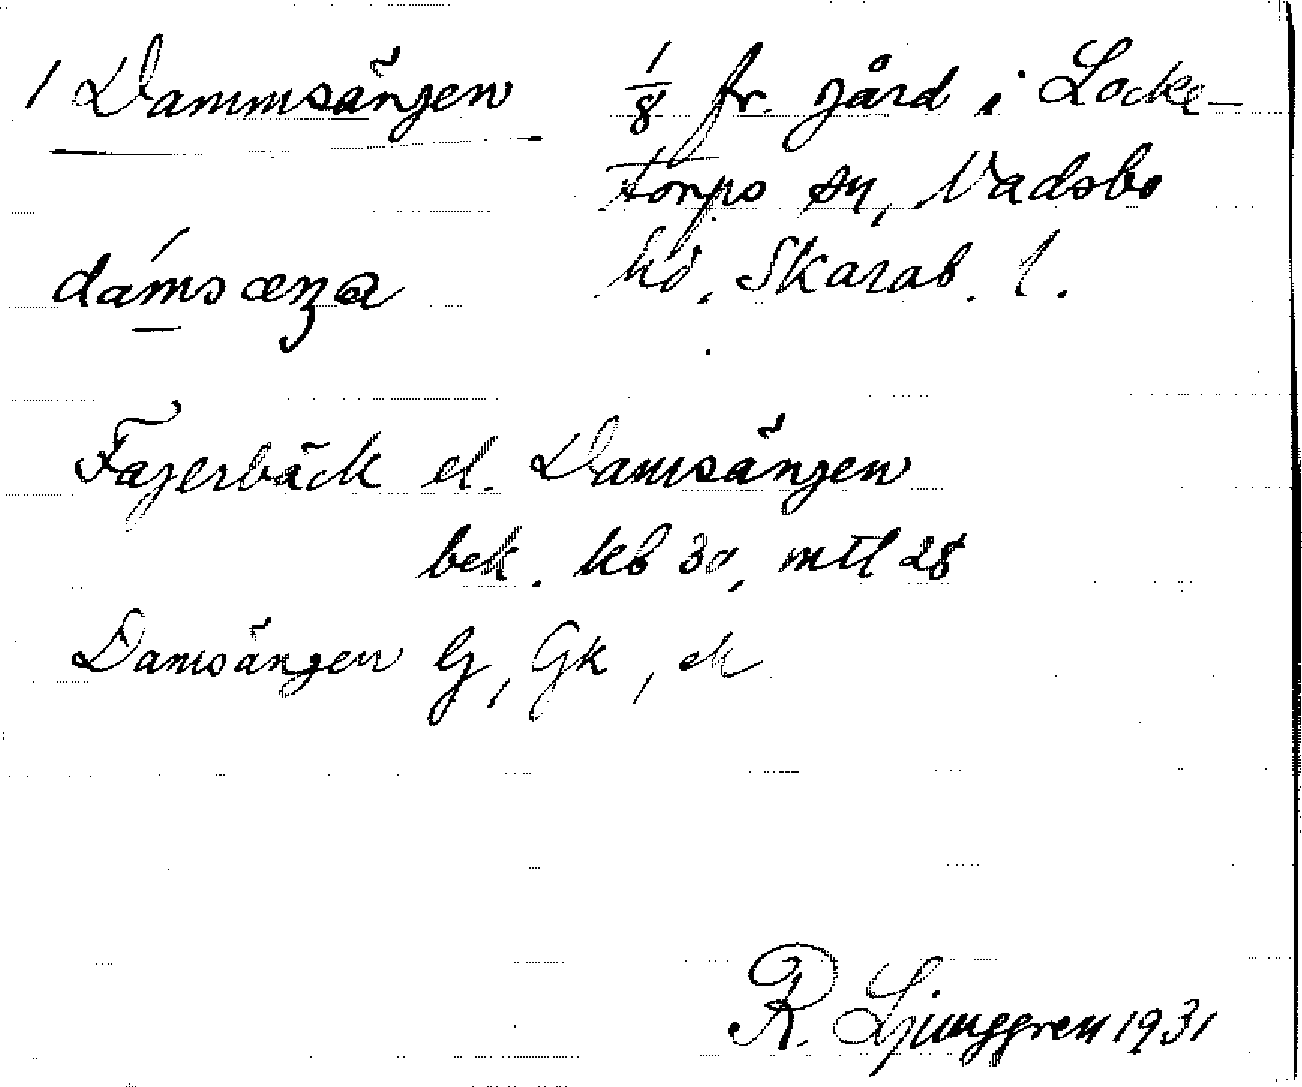 1 Dammsängen
1/8 fr. gård i Locke-
torps sn, Vadsbo
hd, Skarab. l.
dámsæŋa
Fagerbäck el. Damsängen
bek. kb 30, mtl 28
Damsängen G, Gk, ek
R. Ljunggren 1931